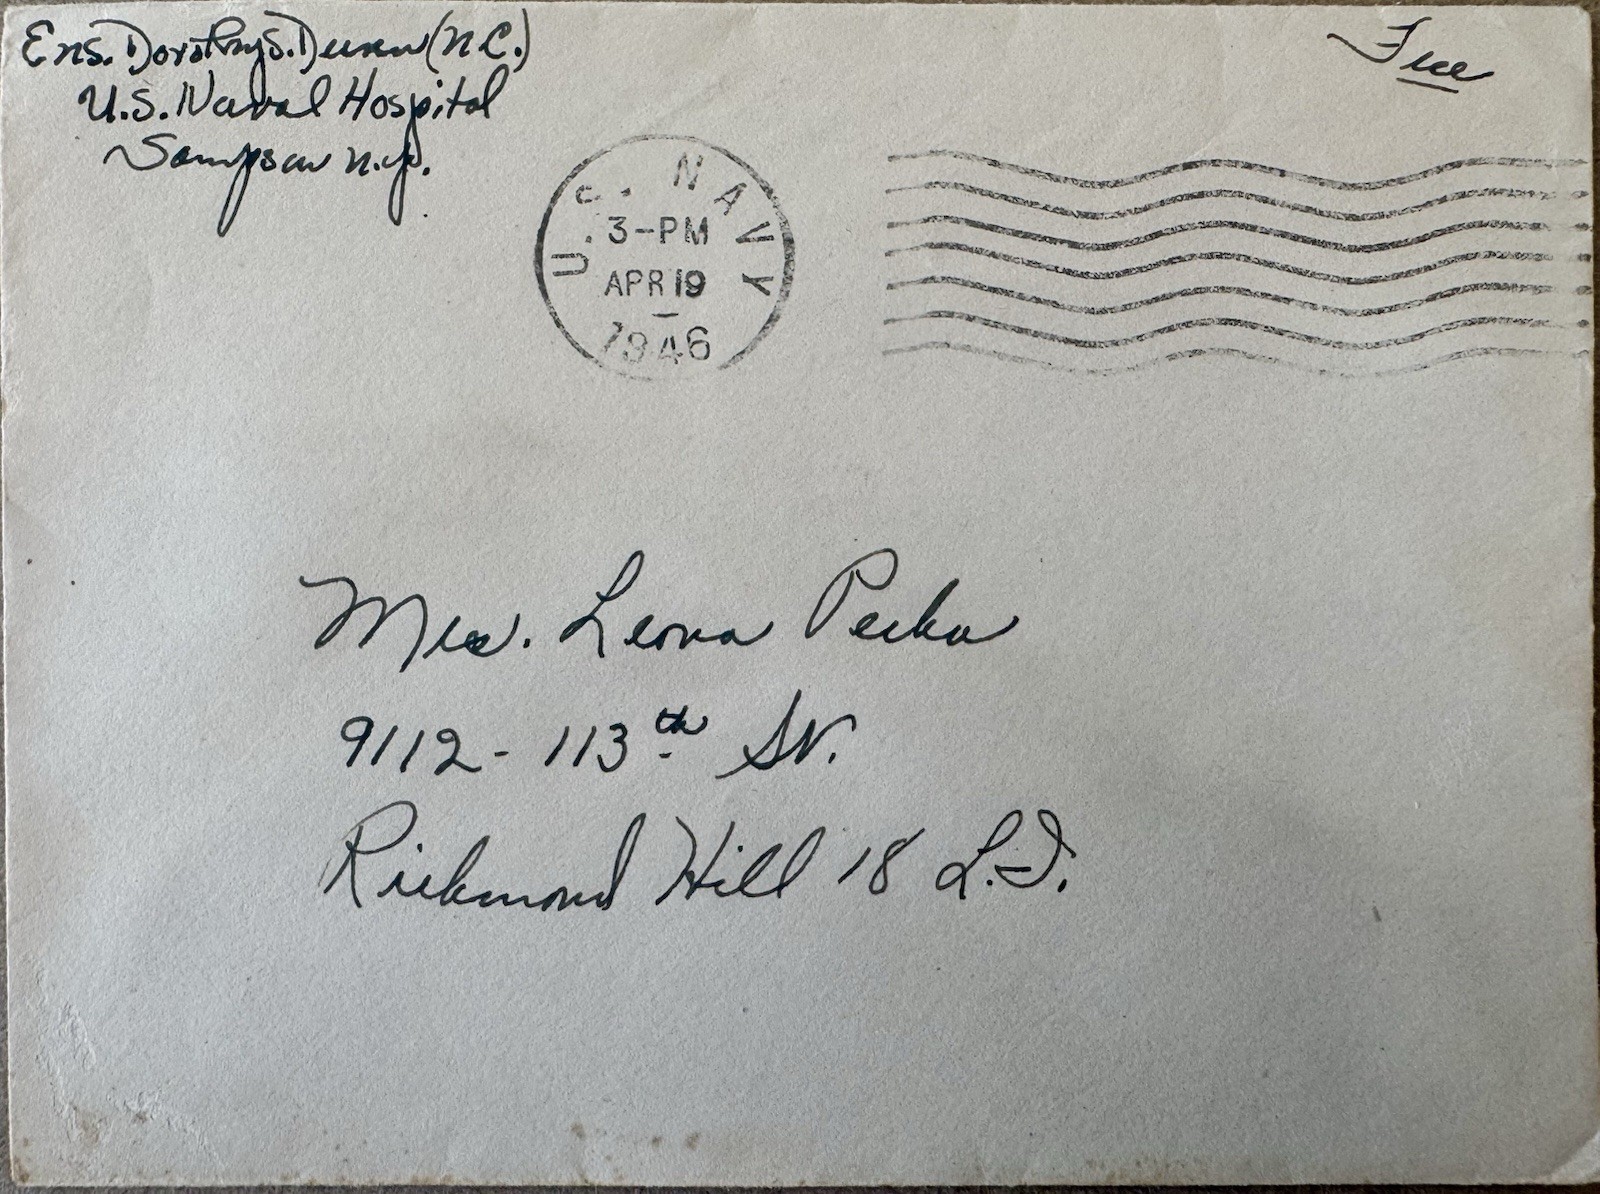 Ens. Dorothy S. Dunn (N.C.)
U.S. Naval Hospital
Sampson N.Y.
Free
U.S. NAVY
3-PM
APR 19
1946
Mrs. Leona
9112 - 113th St.
Richmond Hill 18 L.I.